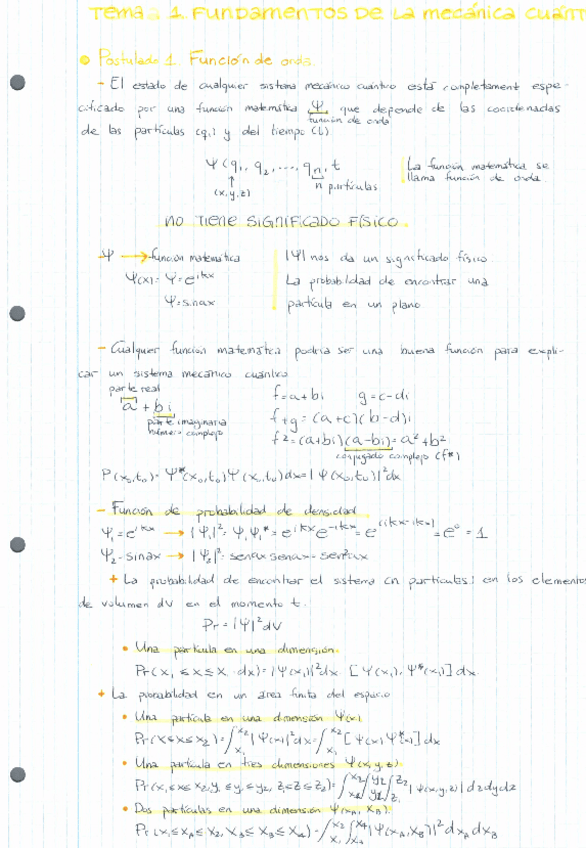 Tema 1. Fundamentos de la mecánica cuánt
Postulado 1. Función de onda.
- El estado de cualquier sistema mecánico cuántico está completamente espe-
cificado por una función matemática Ψ que depende de las coordenadas
función de onda
de las partículas (q,) y del tiempo (t)
Ψ(q₁, q₂, ..., qₙ, t
(x,y,z)
n partículas
La función matemática se
llama función de onda
NO TIENE SIGNIFICADO FÍSICO.
Ψ → función matemática
Ψ(x) = Ψ = e^ikx
Ψ = sinax
|Ψ| nos da un significado físico.
La probabilidad de encontrar una
partícula en un plano
- Cualquier función matemática podría ser una buena función para expli-
car un sistema mecánico cuántico
parte real
a + bi
parte imaginaria
número complejo
f = a + bi g = c - di
f + g = (a+c)(b-d)i
f² = (a+bi)(a-bi) = a² + b²
conjugado complejo (f*)
P(x₀,t₀) = Ψ*(x₀,t₀)Ψ(x₀,t₀)dx = |Ψ(x₀,t₀)|²dx
- Función de probabilidad de densidad
Ψ₁ = e^ikx → |Ψ₁|² = Ψ₁Ψ₁* = e^ikx e^-ikx = e^(ikx-ikx) = e⁰ = 1
Ψ₂ = sinax → |Ψ₂|² = senax senax = sen²ax
+ La probabilidad de encontrar el sistema (n partículas) en los elementos
de volumen dV en el momento t.
Pr = |Ψ|²dV
• Una partícula en una dimensión.
Pr(x₁ ≤ x ≤ x₁ dx) = |Ψ(x₁)|²dx [Ψ(x₁), Ψ*(x₁)] dx
+ La probabilidad en un área finita del espacio
• Una partícula en una dimensión Ψ(x)
Pr(x ≤ x ≤ x₂) = ∫x₁^x₂ |Ψ(x)|²dx = ∫x₁^x₂ [Ψ(x) Ψ*(x)] dx
• Una partícula en tres dimensiones Ψ(x,y,z)
Pr(x₁ ≤ x ≤ x₂, y₁ ≤ y ≤ y₂, z₁ ≤ z ≤ z₂) = ∫x₁^x₂ ∫y₁^y₂ ∫z₁^z₂ |Ψ(x,y,z)| dzdydz
• Dos partículas en una dimensión Ψ(xA, xB).
Pr(x₁ ≤ xA ≤ x₂, x₃ ≤ xB ≤ x₄) = ∫x₁^x₂ ∫x₃^x₄ |Ψ(xA,xB)|² dxA dxB